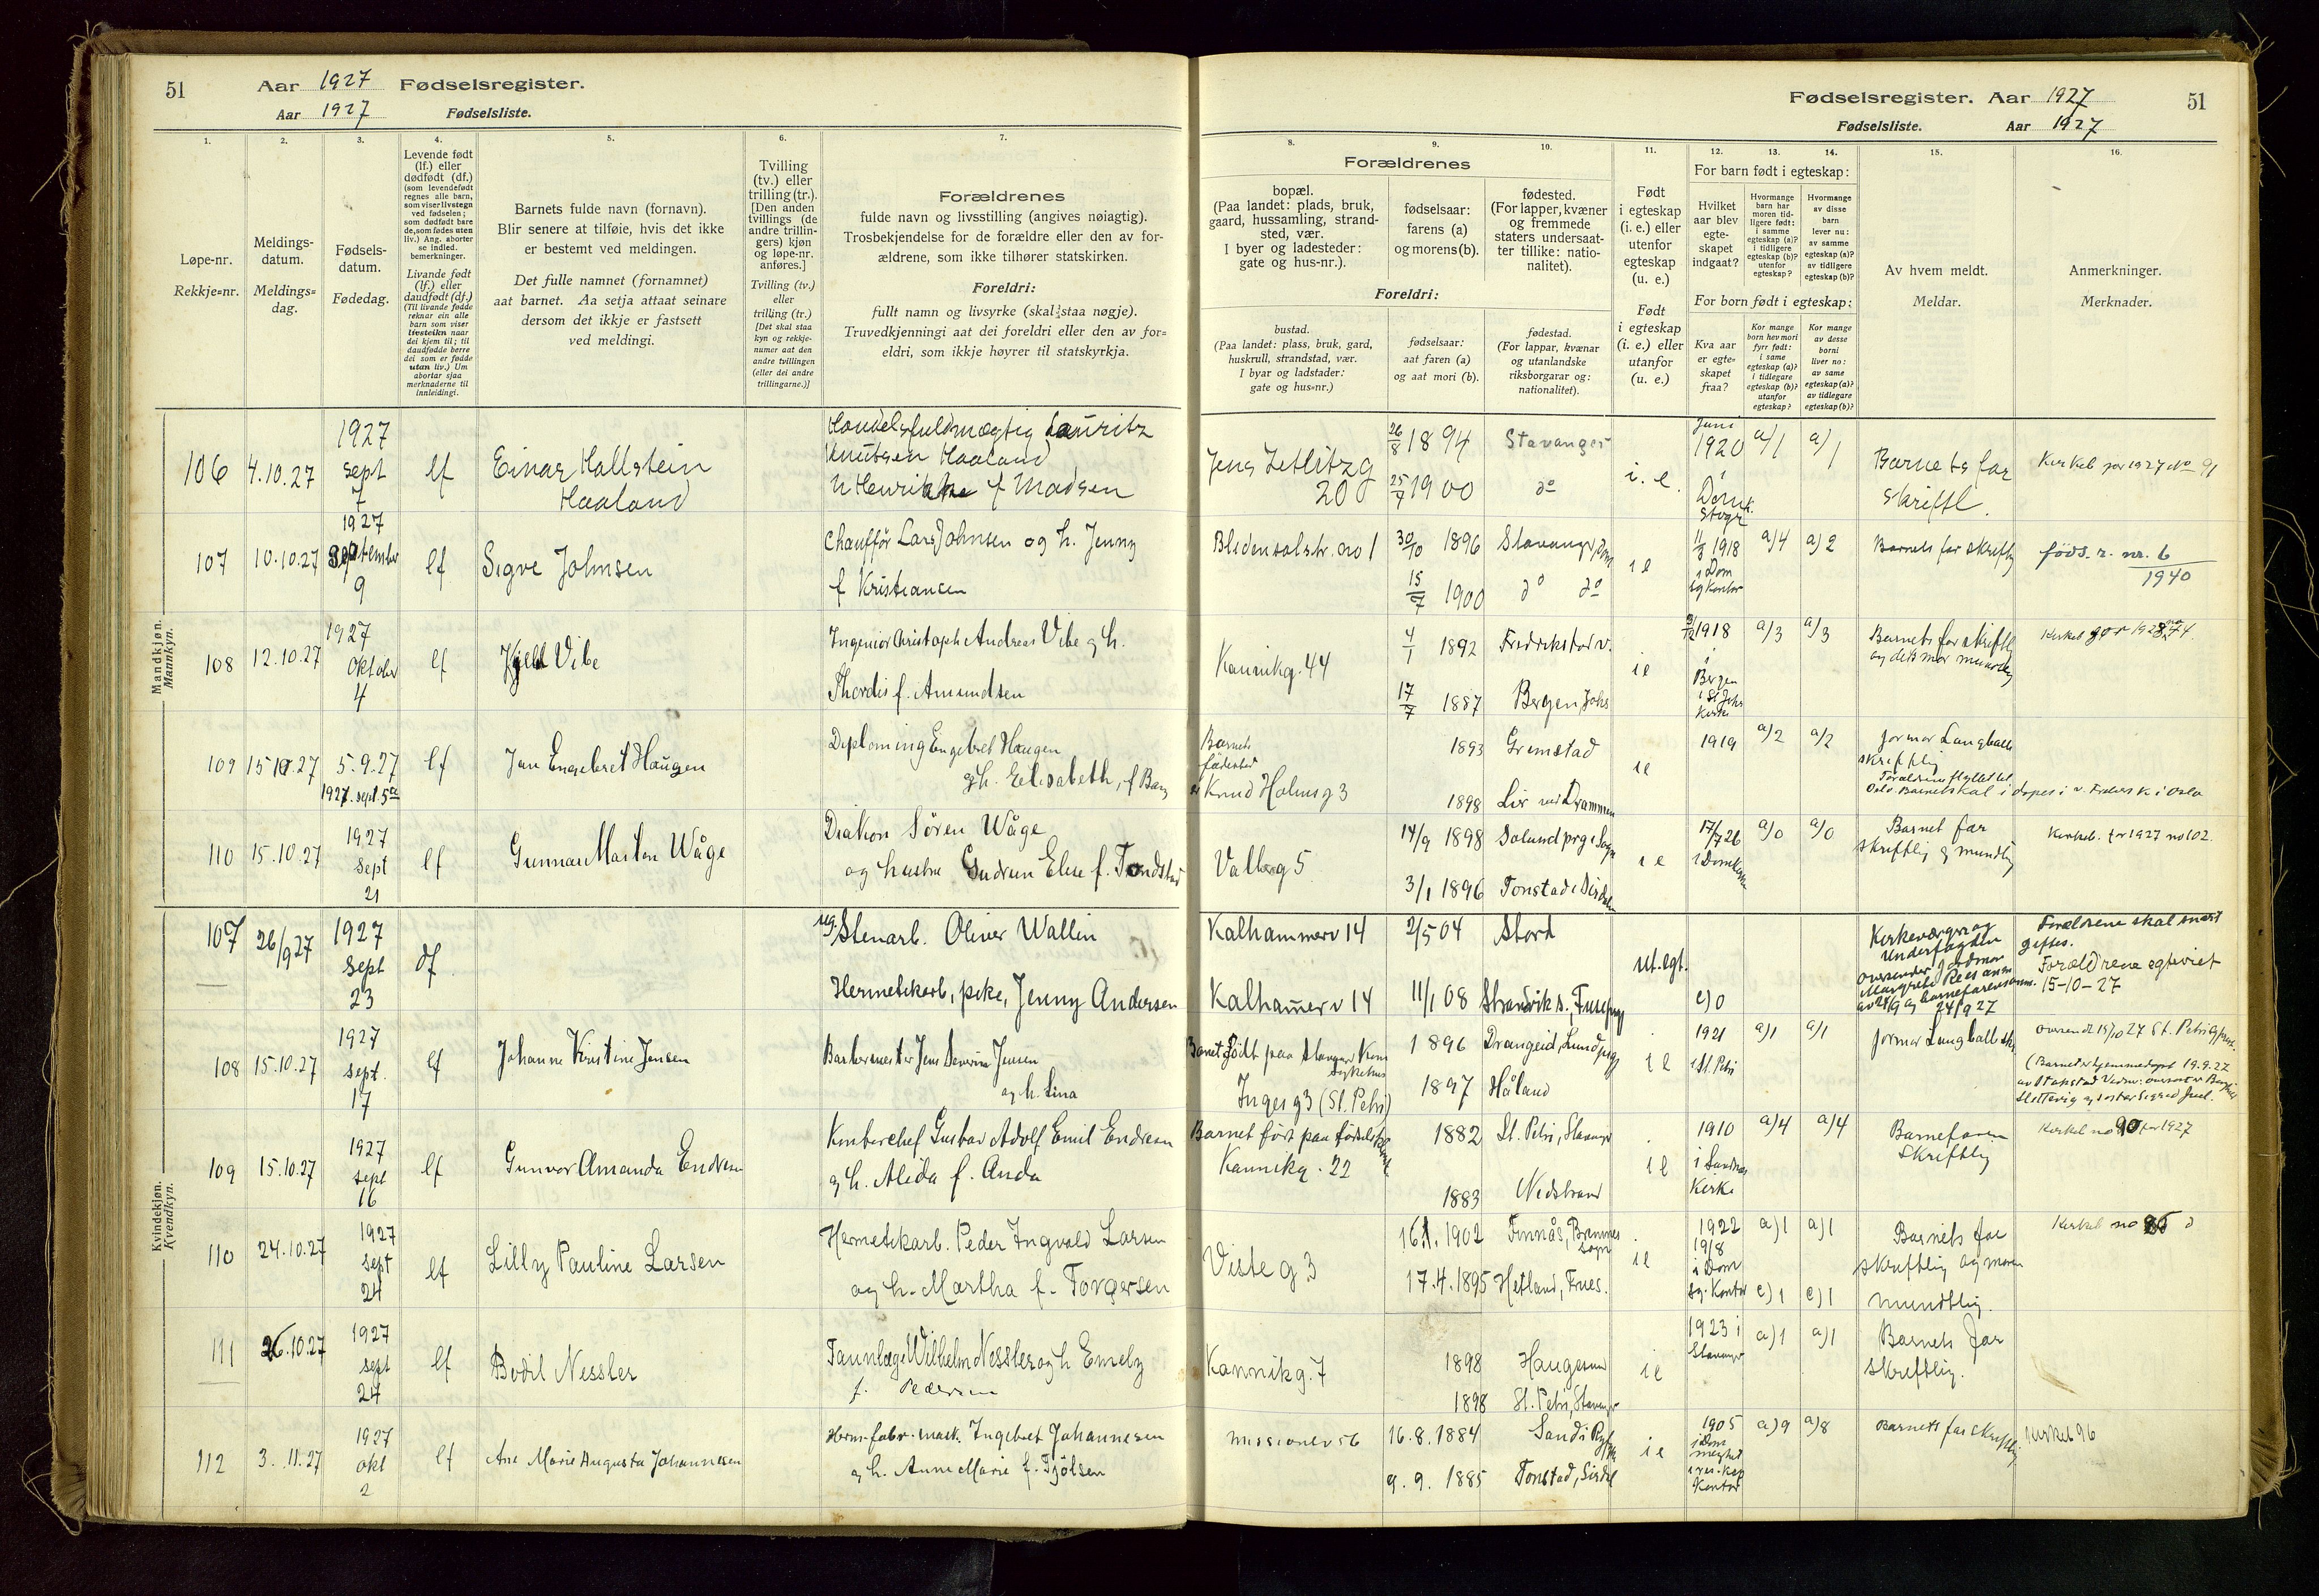 51 Aar 1927 Fødselsregister.
Aar 1927 Fødselsliste.
1. 2. 3. 4. 5. 6. 7.
Løpe-nr.
Rekkje=nr.
Meldings-
datum.
Meldings=
dag.
Fødsels-
datum.
Fødedag.
Levende født
(lf.) eller
dødfødt (df.)
(som levendefødt
regnes alle barn,
som viser livstegn
ved fødselen;
som dødfødt bare
de, som fødes uten
liv.) Ang. aborter
se indled.
bemerkninger.
Livande født
(lf.) eller
daudfødt (df.)
(Til livande fødde
reknar ein alle
barn som viser
livsteikn naar
dei kjem til; til
daudfødde berre
dei som er fødde
utan liv.) Um
abortar sjaa
merknaderne til
innleidingi.
Barnets fulde navn (fornavn).
Blir senere at tilføie, hvis det ikke
er bestemt ved meldingen.
Det fulle namnet (fornamnet)
aat barnet. Aa setja attaat seinare
dersom det ikkje er fastsett
ved meldingi.
Tvilling
(tv.) eller
trilling (tr.).
[Den anden
tvillings (de
andre trillin-
gers) kjøn
og løpe-nr.
anføres.]
Tvilling (tv.)
eller
trilling (tr.)
[Det skal staa
kyn og rekkje-
numer aat den
andre tvillingen
(eller dei andre
trillingarne.)]
Forældrenes
fulde navn og livsstilling (angives nøiagtig).
Trosbekjendelse for de forældre eller den av for-
ældrene, som ikke tilhører statskirken.
Foreldri:
fullt namn og livsyrke (skal staa nøgje).
Truvedkjenningi aat dei foreldri eller den av for=
eldri, som ikkje høyrer til statskyrkja.
Mandkjøn.
Mannkyn.
106 4.10.27 1927 sept 7 lf Einar Hallstein
Haaland
Handelsfuldmægtig Lauritz
Knutsen Haaland
h Henrikke f Madsen
107 10.10.27 1927 September 9 lf Sigve Johnsen
Chauffør Lars Johnsen og h. Jenny
f Kristiansen
108 12.10.27 1927 Oktober 4 lf Kjell Vibe
Ingeniør Christoph Andreas Vibe og h.
Thordis f. Amundsen
109 15 10.27 5.9.27 lf Jan Engebret Haugen
1927. sept. 5te
Diploming Engebret Haugen
og h. Elisabeth, f Bang
110 15.10.27 1927 sept 21 lf Gunnar Marton Wåge
Diakon Søren Wåge
og hustru Gudrun Elise f. Tondstad
Kvindekjøn.
Kvendkyn.
107 26/9 27 1927 Sept 23 df
ug. Stenarb. Oliver Wallin
Hermetikarb, pike, Jenny Andersen
108 15.10.27 1927 sept. 17 lf Johanne Kirstine Jensen
Barbermester Jens Severin Jensen
og h. Lina
109 15.10.27 1927 sept 16 lf Gunvor Amanda Endresen
Kontorchef Gustav Adolf Emil Endresen
og h. Alida f. Anda
110 24.10.27 1927 sept 24 lf Lilly Pauline Larsen
Hermetikarb. Peder Ingvald Larsen
og h. Martha f. Torgersen
111 26.10.27 1927 sept 24 lf Bodil Nessler
Tannlæge Wilhelm Nessler og h Emely
f. Pedersen
112 3.11.27 1927 okt 2 lf Ane Marie Augusta Johannesen
Herm. fabr. mask. Ingebret Johannesen
og h. Anne Marie f. Tjølsen
Fødselsregister. Aar 1927 51
Fødselsliste. Aar 1927
8. 9. 10. 11. 12. 13. 14. 15. 16.
Forældrenes
bopæl.
(Paa landet: plads, bruk,
gaard, hussamling, strand-
sted, vær.
I byer og ladesteder:
gate og hus-nr.).
fødselsaar:
farens (a)
og morens (b).
fødested.
(For lapper, kvæner
og fremmede
staters undersaat-
ter tillike: natio-
nalitet).
Foreldri:
bustad.
(Paa landet: plass, bruk, gard,
huskrull, strandstad, vær.
I byar og ladstader:
gate og hus=nr.)
fødselsaar:
aat faren (a)
og aat mori (b).
fødestad.
(For lappar, kvænar
og utanlandske
riksborgarar og:
nationalitet).
Født
i egteskap
(i. e.) eller
utenfor
egteskap
(u. e.)
Født
i egteskap
(i. e.) eller
utanfor
(u. e.)
For barn født i egteskap:
Hvilket
aar blev
egte-
skapet
indgaat?
Hvormange
barn har
moren tid-
ligere født:
i samme
egteskap (a)?
i tidligere
egteskap (b)?
utenfor
egteskap?
Hvormange
av disse
barn
lever nu:
av samme
egteskap (a)?
av tidligere
egteskap (b)?
For born født i egteskap:
Kva aar
er egte-
skapet
fraa?
Kor mange
born hev mori
fyrr født:
i same
egteskap (a)?
i tidlegare
egteskap (b)?
utanfor
egteskap?
Kor mange
av desse
borni
liver no:
av same
egteskap (a)?
av tidlegare
egteskap (b)?
Av hvem meldt.
Meldar.
Anmerkninger.
Merknader.
Jens Zetlitzg
20
26/8 1894 Stavanger
25/7 1900 do
i. e.
Juni
1920
i
Domk.
Stvgr
a/1 a/1
Barnets far
skriftl.
Kirkeb for 1927 No 91
Bledensolstr. no 1
30/10 1896 Stavanger, Dom
15/7 1900 do do
i e
11/8 1918
i Dom
sg kontor
a/4 a/2
Barnets far skriftlig
føds. r. nr. 6
1940
Kannikg. 44
4/1 1892 Fredrikstad v.
17/7 1887 Bergen, Johs
i e
1918
i
Bergen
i St Johs
Kirke
a/3 a/3
Barnets far skriftlig
og dets mor muntlig
Kirkeb for 1928 no 74.
Barnets
fødested
er Knud Holmsg 3
1893 Grimstad
1898 Lier ved Drammen
i e
1919 a/2 a/2
jormor Langballe
skriftlig
Forældrene flyttet til
Oslo. Barnet skal i døpes i v. Frelsers K i Oslo
Valbrg 5
14/9 1898 Solund prg i Sogn
3/1 1896 Tonstad i Sirdalen
i e
17/7 26
i Domkirke
a/0 a/0
Barnet far
skriftlig og mundtlig
Kirkeb. for 1927 no 102.
Kalhammerv 14
2/5 04 Stord
Kalhamerv 14
11/1 08 Strandvik s., Fuse prg
ut. egt.
c) 0
Kirkeværge og
Underfogden
oversender jordmor
Margrete Rees anm.
av 24/9 og barnefarens anm.
24/9 27
Forældrene skal snart
giftes.
Forældrene egteviet
15-10-27
Barnet født paa Stavanger Kom
Sykehus
Inges g 3 (St. Petri)
1896 Drangeid, Lund prgj
1897 Håland
i e
1921
i St. Petri
a/1 a/1
jormor Langballe sk.
oversendt 15/10 27 St. Petri
(Barnet er hjemmedøpt 19.9.27
Barnet født paa fødselshjem
Kannikg. 22
1882 St. Petri, Stavanger
1883 Nedstrand
i e
1910
i Sandnes
Kirke
a/4 a/4
Barnefaren
skriftlig
Kirkeb no 90 for 1927
Viste g 3
16.1.1902 Finnås, Bremnes
sogn
17.4.1895 Hetland, Frues.
i e
1922
19/8
i Dom
sg. Kontor
a)1 a)1
c)1 c)1
Barnets far
skriftlig og moren
mundtlig.
Kirkeb no 86
Kannikg. 7
1898 Haugesund
1898 St. Petri, Stavanger
i e
1923 i
Stavanger
a)1 a)1
Barnets far
skriftlig.
Missionsv 56
16.8.1884 Sand i Ryfylke
9.9.1885 Tonstad, Sirdal
i e
1905
i Dom
menighet
Kontor
a)9 a)8
Barnets far skriftlig
Kirkeb 96